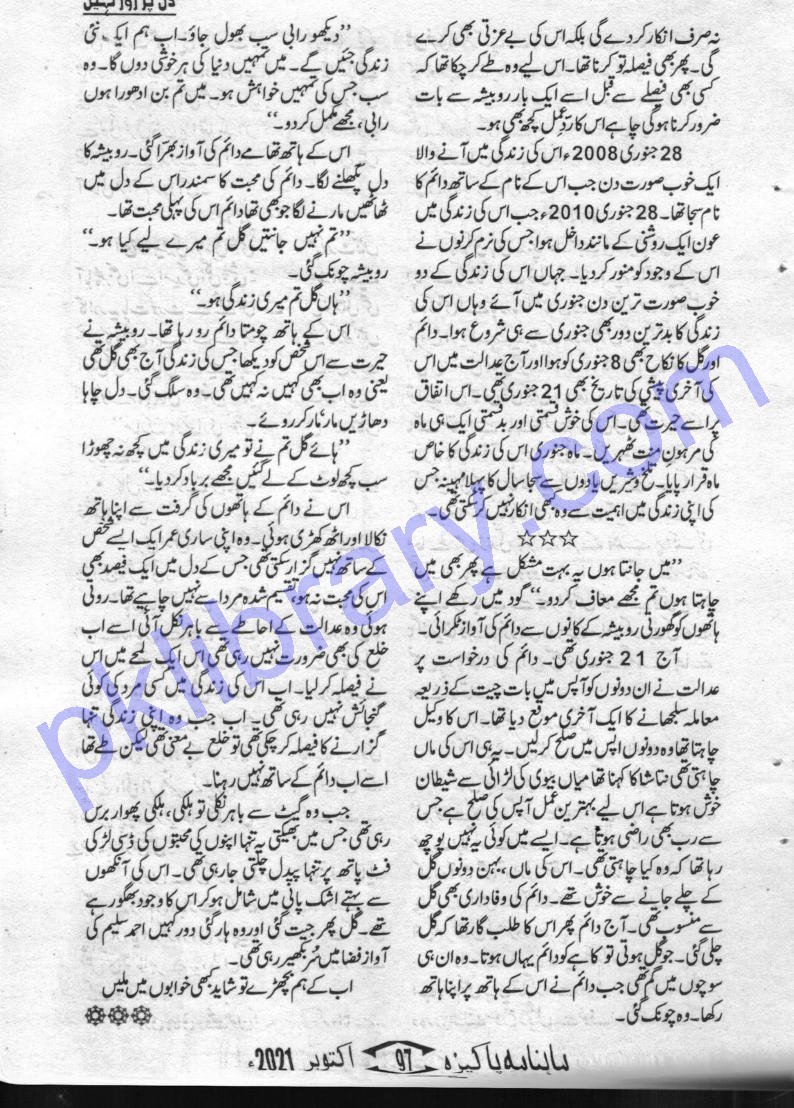 دل پر زور نہیں
نہ صرف انکار کردے گی بلکہ اس کی بے عزتی بھی کرے
گی۔ پھر بھی فیصلہ تو کرنا تھا۔ اس لیے وہ طے کرچکا تھا کہ
کسی بھی فیصلے سے قبل اسے ایک بار روبیشہ سے بات
ضرور کرنا ہوگی چاہے اس کا ردِعمل کچھ بھی ہو۔
28 جنوری 2008ء اس کی زندگی میں آنے والا
ایک خوب صورت دن جب اس کے نام کے ساتھ دائم کا
نام سجا تھا۔ 28 جنوری 2010ء جب اس کی زندگی میں
عون ایک روشنی کے مانند داخل ہوا جس کی نرم کرنوں نے
اس کے وجود کو منور کردیا۔ جہاں اس کی زندگی کے دو
خوب صورت ترین دن جنوری میں آئے وہاں اس کی
زندگی کا بدترین دور بھی جنوری سے ہی شروع ہوا۔ دائم
اور گل کا نکاح بھی 8 جنوری کو ہوا اور آج عدالت میں اس
کی آخری پیشی کی تاریخ بھی 21 جنوری تھی۔ اس اتفاق
پر اسے حیرت تھی۔ اس کی خوش قسمتی اور بدقسمتی ایک ہی ماہ
کی مرہونِ منت ٹھہریں۔ ماہ جنوری اس کی زندگی کا خاص
ماہ قرار پایا۔ تلخ و شیریں یادوں سے سجا سال کا پہلا مہینہ جس
کی اپنی زندگی میں اہمیت سے وہ بھی انکار نہیں کرسکتی تھی۔
☆☆☆
’’میں جانتا ہوں یہ بہت مشکل ہے پھر بھی میں
چاہتا ہوں تم مجھے معاف کردو۔‘‘ گود میں رکھے اپنے
ہاتھوں کو گھورتی روبیشہ کے کانوں سے دائم کی آواز ٹکرائی۔
آج 21 جنوری تھی۔ دائم کی درخواست پر
عدالت نے ان دونوں کو آپس میں بات چیت کے ذریعہ
معاملہ سلجھانے کا ایک آخری موقع دیا تھا۔ اس کا وکیل
چاہتا تھا وہ دونوں آپس میں صلح کرلیں۔ یہی اس کی ماں
چاہتی تھی نتاشا کا کہنا تھا میاں بیوی کی لڑائی سے شیطان
خوش ہوتا ہے اس لیے بہترین عمل آپس کی صلح ہے جس
سے رب بھی راضی ہوتا ہے۔ ایسے میں کوئی یہ نہیں پوچھ
رہا تھا کہ وہ کیا چاہتی تھی۔ اس کی ماں، بہن دونوں گل
کے چلے جانے سے خوش تھے۔ دائم کی وفاداری بھی گل
سے منسوب تھی۔ آج دائم پھر اس کا طلب گار تھا کہ گل
چلی گئی۔ جو گل ہوتی تو کاہے کو دائم یہاں ہوتا۔ وہ ان ہی
سوچوں میں گم تھی جب دائم نے اس کے ہاتھ پر اپنا ہاتھ
رکھا۔ وہ چونک گئی۔
’’دیکھو رابی سب بھول جاؤ۔ اب ہم ایک نئی
زندگی جئیں گے۔ میں تمہیں دنیا کی ہر خوشی دوں گا۔ وہ
سب جس کی تمہیں خواہش ہو۔ میں تم بن ادھورا ہوں
رابی، مجھے مکمل کردو۔‘‘
اس کے ہاتھ تھامے دائم کی آواز بھرا گئی۔ روبیشہ کا
دل پگھلنے لگا۔ دائم کی محبت کا سمندر اس کے دل میں
ٹھاٹھیں مارنے لگا جو بھی تھا دائم اس کی پہلی محبت تھا۔
’’تم نہیں جانتیں گل تم میرے لیے کیا ہو۔‘‘
روبیشہ چونک گئی۔
’’ہاں گل تم میری زندگی ہو۔‘‘
اس کے ہاتھ چومتا دائم رو رہا تھا۔ روبیشہ نے
حیرت سے اس شخص کو دیکھا جس کی زندگی آج بھی گل تھی
یعنی وہ اب بھی کہیں نہ کہیں تھی۔ وہ سلگ گئی۔ دل چاہا
دھاڑیں مار، مار کر روئے۔
’’ہائے گل تم نے تو میری زندگی میں کچھ نہ چھوڑا
سب کچھ لوٹ کے لے گئیں مجھے برباد کردیا۔‘‘
اس نے دائم کے ہاتھوں کی گرفت سے اپنا ہاتھ
نکالا اور اٹھ کھڑی ہوئی۔ وہ اپنی ساری عمر ایک ایسے شخص
کے ساتھ نہیں گزار سکتی تھی جس کے دل میں ایک فیصد بھی
اس کی محبت نہ ہو، تقسیم شدہ مرد اسے نہیں چاہیے تھا۔ روتی
ہوئی وہ عدالت کے احاطے سے باہر نکل آئی اسے اب
خلع کی بھی ضرورت نہیں رہی تھی اس ایک لمحے میں اس
نے فیصلہ کرلیا۔ اب اس کی زندگی میں کسی مرد کی کوئی
گنجائش نہیں رہی تھی۔ اب جب وہ اپنی زندگی تنہا
گزارنے کا فیصلہ کرچکی تھی تو خلع بے معنی تھی لیکن طے تھا
اسے اب دائم کے ساتھ نہیں رہنا۔
جب وہ گیٹ سے باہر نکلی تو ہلکی، ہلکی پھوار برس
رہی تھی جس میں بھیگتی یہ تنہا اپنوں کی محبتوں کی ڈسی لڑکی
فٹ پاتھ پر تنہا پیدل چلتی جارہی تھی۔ اس کی آنکھوں
سے بہتے اشک پانی میں شامل ہوکر اس کا وجود بھگو رہے
تھے۔ گل پھر جیت گئی اور وہ ہار گئی دور کہیں احمد سلیم کی
آواز فضا میں سُر بکھیر رہی تھی۔
اب کے ہم بچھڑے تو شاید کبھی خوابوں میں ملیں
ماہنامہ پاکیزہ 97 اکتوبر 2021ء
pklibrary.com